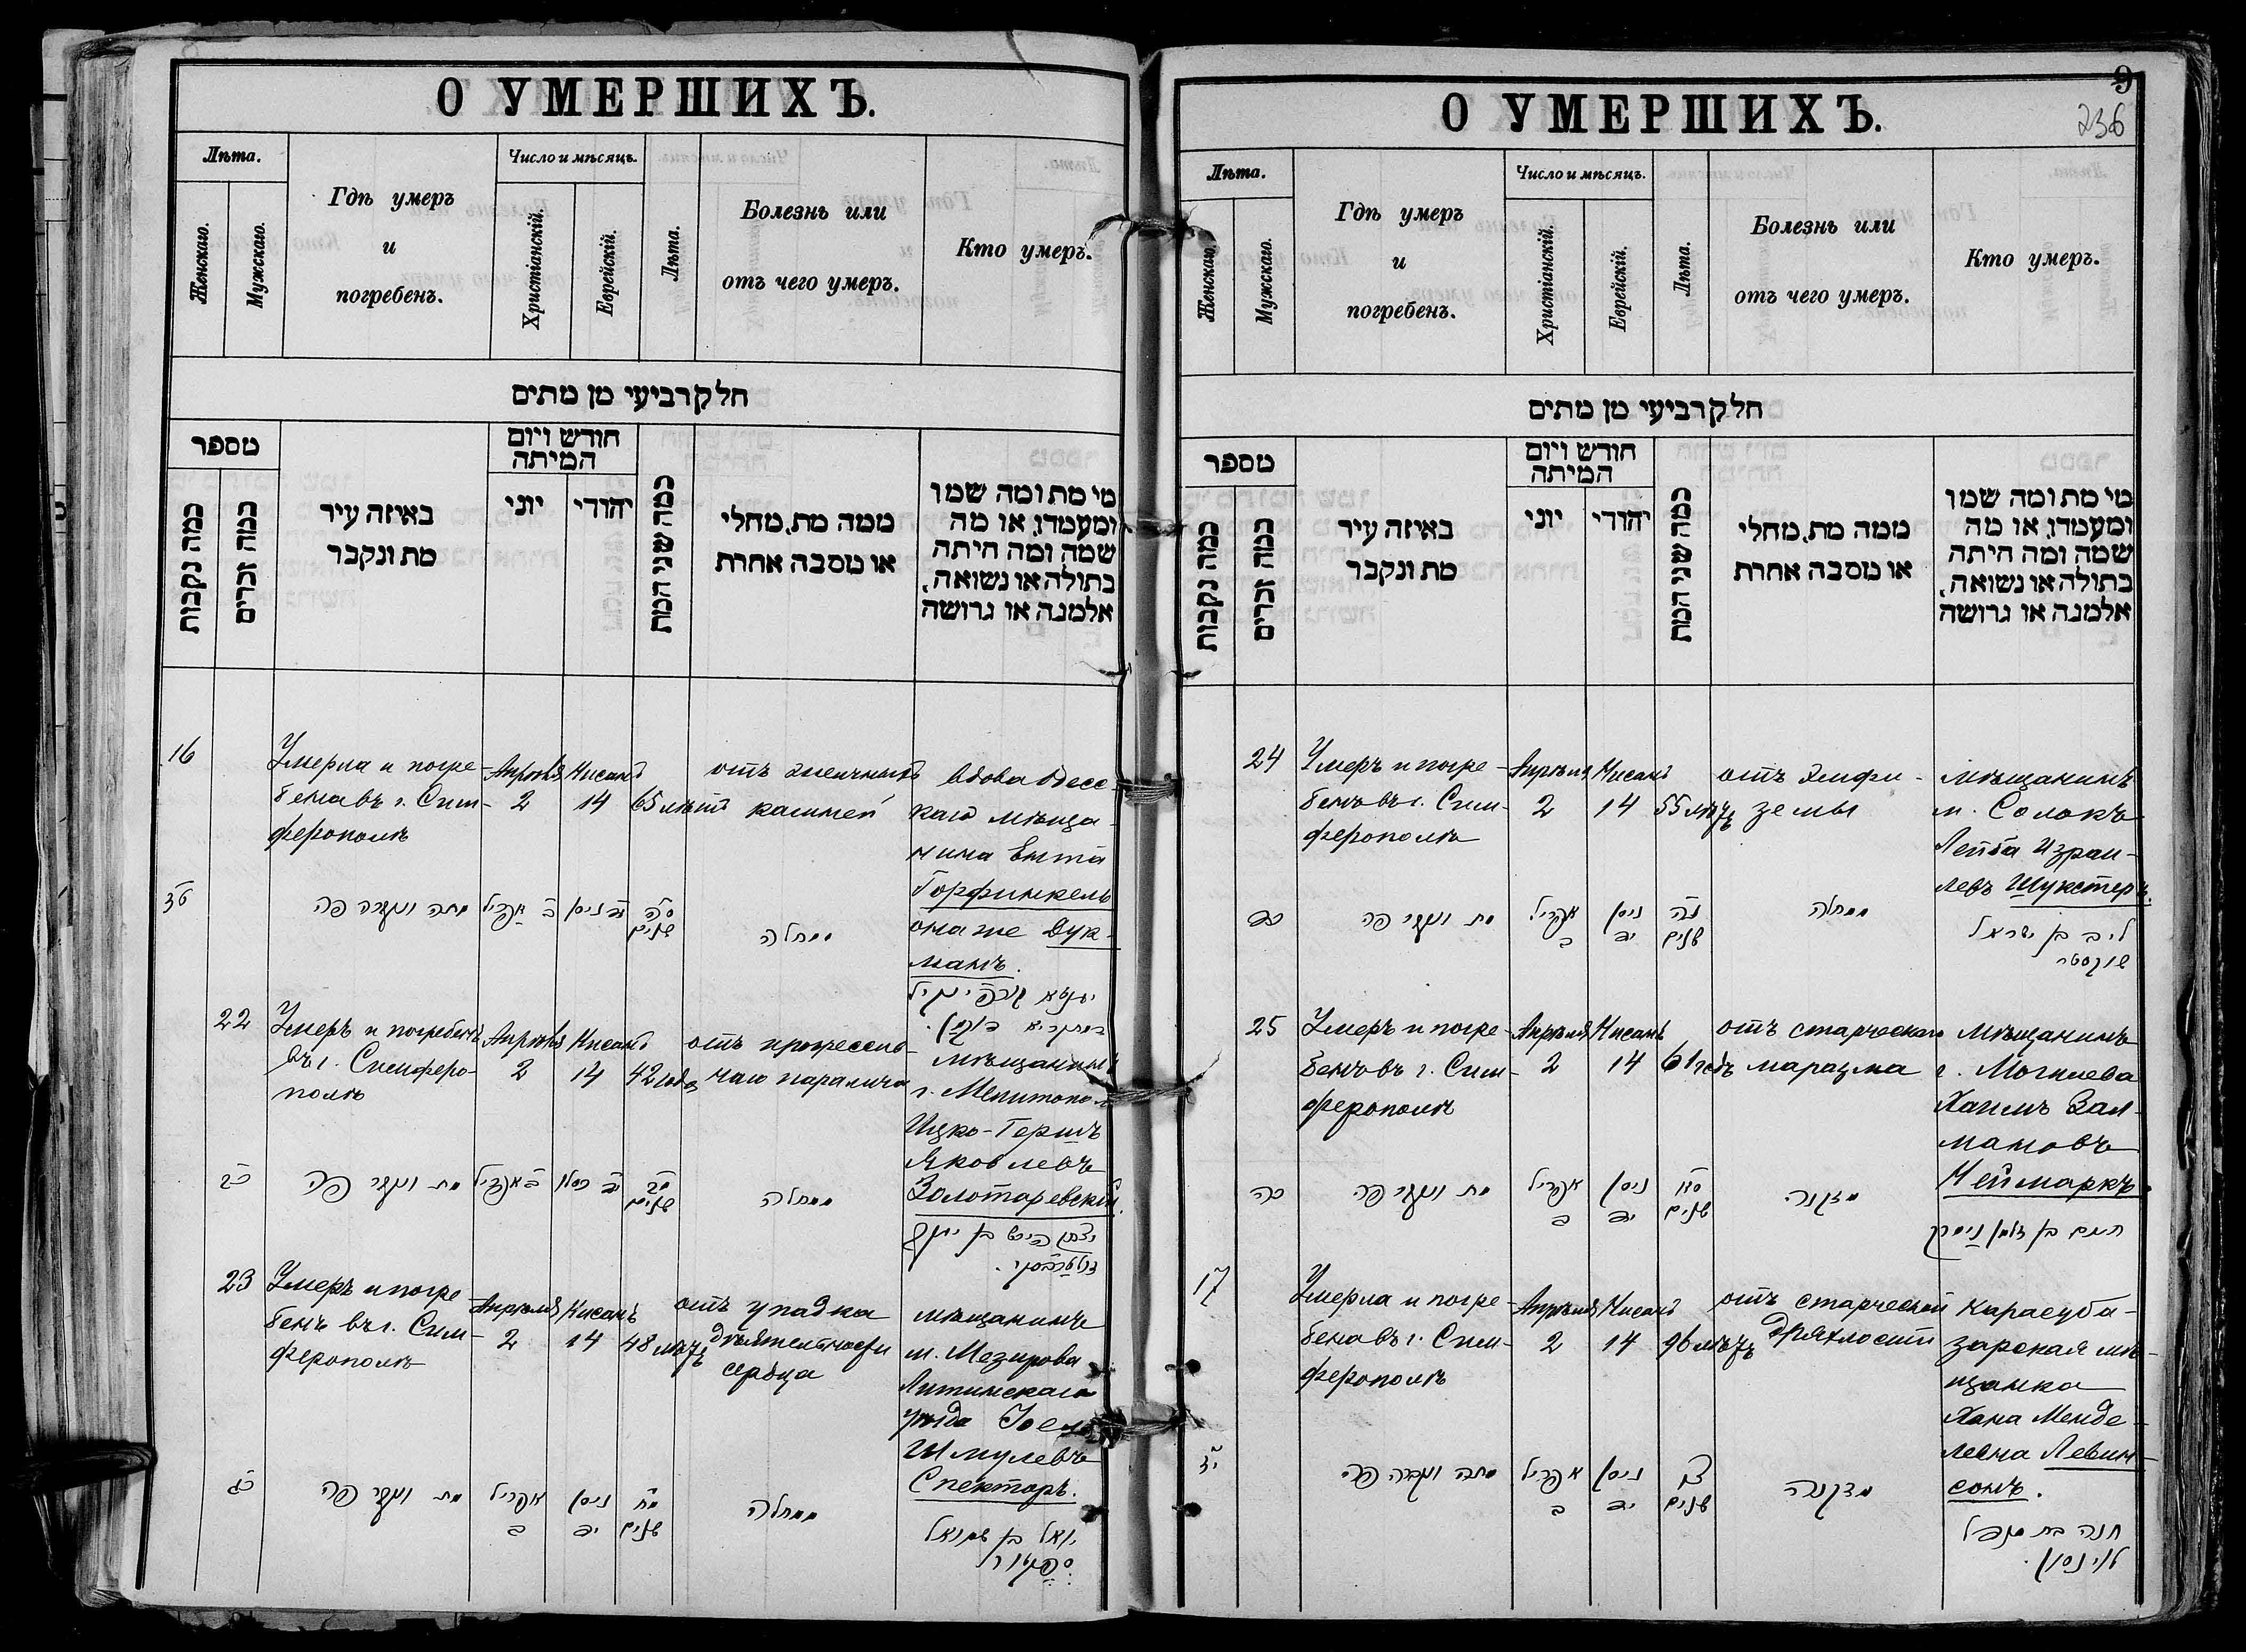 О УМЕРШИХЪ.
Лѣта.
Женскаго.
Мужскаго.
Гдѣ умеръ
и
погребенъ.
Число и мѣсяцъ.
Христіанскій.
Еврейскій.
Лѣта.
Болезнь или
отъ чего умеръ.
Кто умеръ.
חלק רביעי מן מתים
מספר
כמה נקבות
כמה זכרים
באיזה עיר
מת ונקבר
חודש ויום
המיתה
יוני
יהודי
כמה שני המת
ממה מת, מחלי
או מסבה אחרת
מי מת ומה שמו
ומעמדו, או מה
שמה ומה היתה
בתולה או נשואה,
אלמנה או גרושה
16
Умерла и погре-
бена въ г. Сим-
ферополѣ
Апрѣля
2
Нисанъ
14
65 лѣтъ
отъ
камней
вдова Одес-
каго мѣща-
нина
Горфинкель
она же Дук-
манъ.
מתה ונקברה פה
ב אפריל
יד ניסן
סה
שנים
מחלה
22
Умеръ и погребенъ
въ г. Симферо-
полѣ
Апрѣля
2
Нисанъ
14
42 года
отъ прогрессив-
наго паралича
мѣщанинъ
г. Мелитопо-
Ицко-Гершъ
Яковлевъ
Золотаревскій.
כב
מת ונקבר פה
ב אפריל
יד ניסן
מב
שנים
מחלה
יצחק הירש בן יעקב
23
Умеръ и погре-
бенъ въ г. Сим-
ферополѣ
Апрѣля
2
Нисанъ
14
48 лѣтъ
отъ упадка
дѣятельности
сердца
мѣщанинъ
м. Мезирова
Литинскаго
уѣзда Іоель
Шмулевъ
Спекторъ.
כג
מת ונקבר פה
אפריל
ב
ניסן
יד
מח
שנים
מחלה
יואל בן שמואל
ספעקטור
О УМЕРШИХЪ.
9
236
Лѣта.
Женскаго.
Мужскаго.
Гдѣ умеръ
и
погребенъ.
Число и мѣсяцъ.
Христіанскій.
Еврейскій.
Лѣта.
Болезнь или
отъ чего умеръ.
Кто умеръ.
חלק רביעי מן מתים
מספר
כמה נקבות
כמה זכרים
באיזה עיר
מת ונקבר
חודש ויום
המיתה
יוני
יהודי
כמה שני המת
ממה מת, מחלי
או מסבה אחרת
מי מת ומה שמו
ומעמדו, או מה
שמה ומה היתה
בתולה או נשואה,
אלמנה או גרושה
24
Умеръ и погре-
бенъ въ г. Сим-
ферополѣ
Апрѣля
2
Нисанъ
14
55 лѣтъ
отъ эмфи-
земы
мѣщанинъ
м. Солокъ
Лейба Израи-
левъ Шукстеръ.
כד
מת ונקבר פה
אפריל
ב
ניסן
יד
נה
שנים
מחלה
ליב בן ישראל
שוקסטר
25
Умеръ и погре-
бенъ въ г. Сим-
ферополѣ
Апрѣля
2
Нисанъ
14
61 годъ
отъ старческаго
маразма
мѣщанинъ
г. Могилева
Хаимъ Зал-
мановъ
Неймаркъ.
כה
מת ונקבר פה
אפריל
ב
ניסן
יד
סא
שנים
מזקנה
חיים בן זלמן ניימרק
17
Умерла и погре-
бена въ г. Сим-
ферополѣ
Апрѣля
2
Нисанъ
14
90 лѣтъ
отъ старческой
дряхлости
карасуба-
зарская мѣ-
щанка
Хана Менде-
левна Левин-
сонъ.
יז
מתה ונקברה פה
אפריל
ב
ניסן
יד
צ
שנים
מזקנה
חנה בת מנדל
לוינסון.